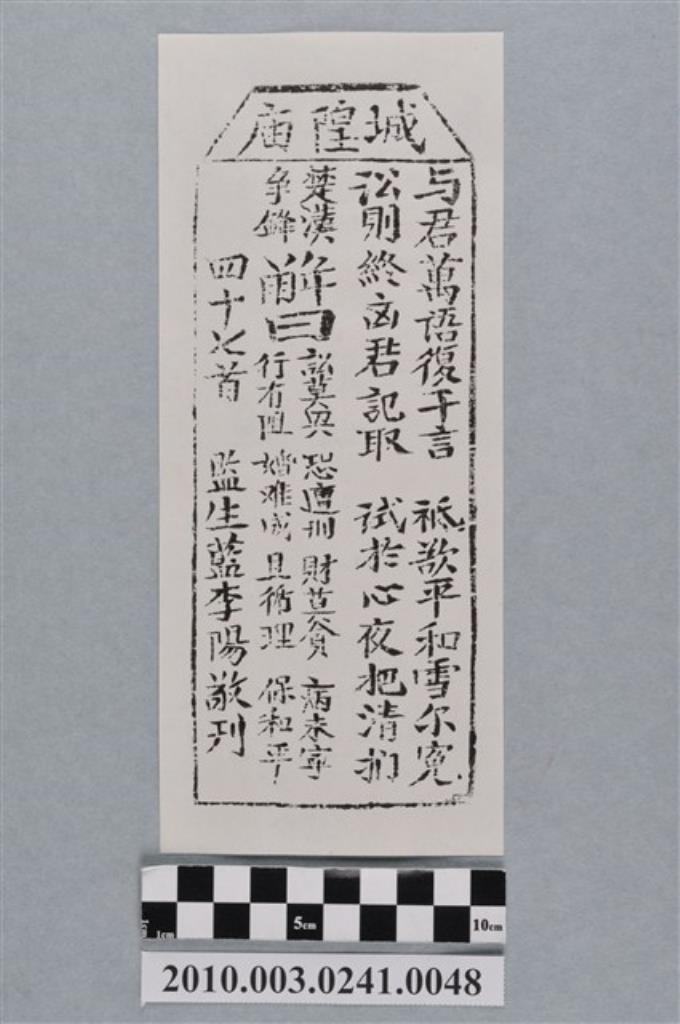 城隍庙
与君萬語復千言 祇欲平和雪尔寃
訟則終凶君記取 试於心夜把清捫
楚漢争鋒
解曰 訟莫興 恐遭刑 財莫貪 病未寧
行有阻 婚难成 且循理 保和平
四十七首 監生藍李陽敬刊
1cm 5cm 10cm
2010.003.0241.0048